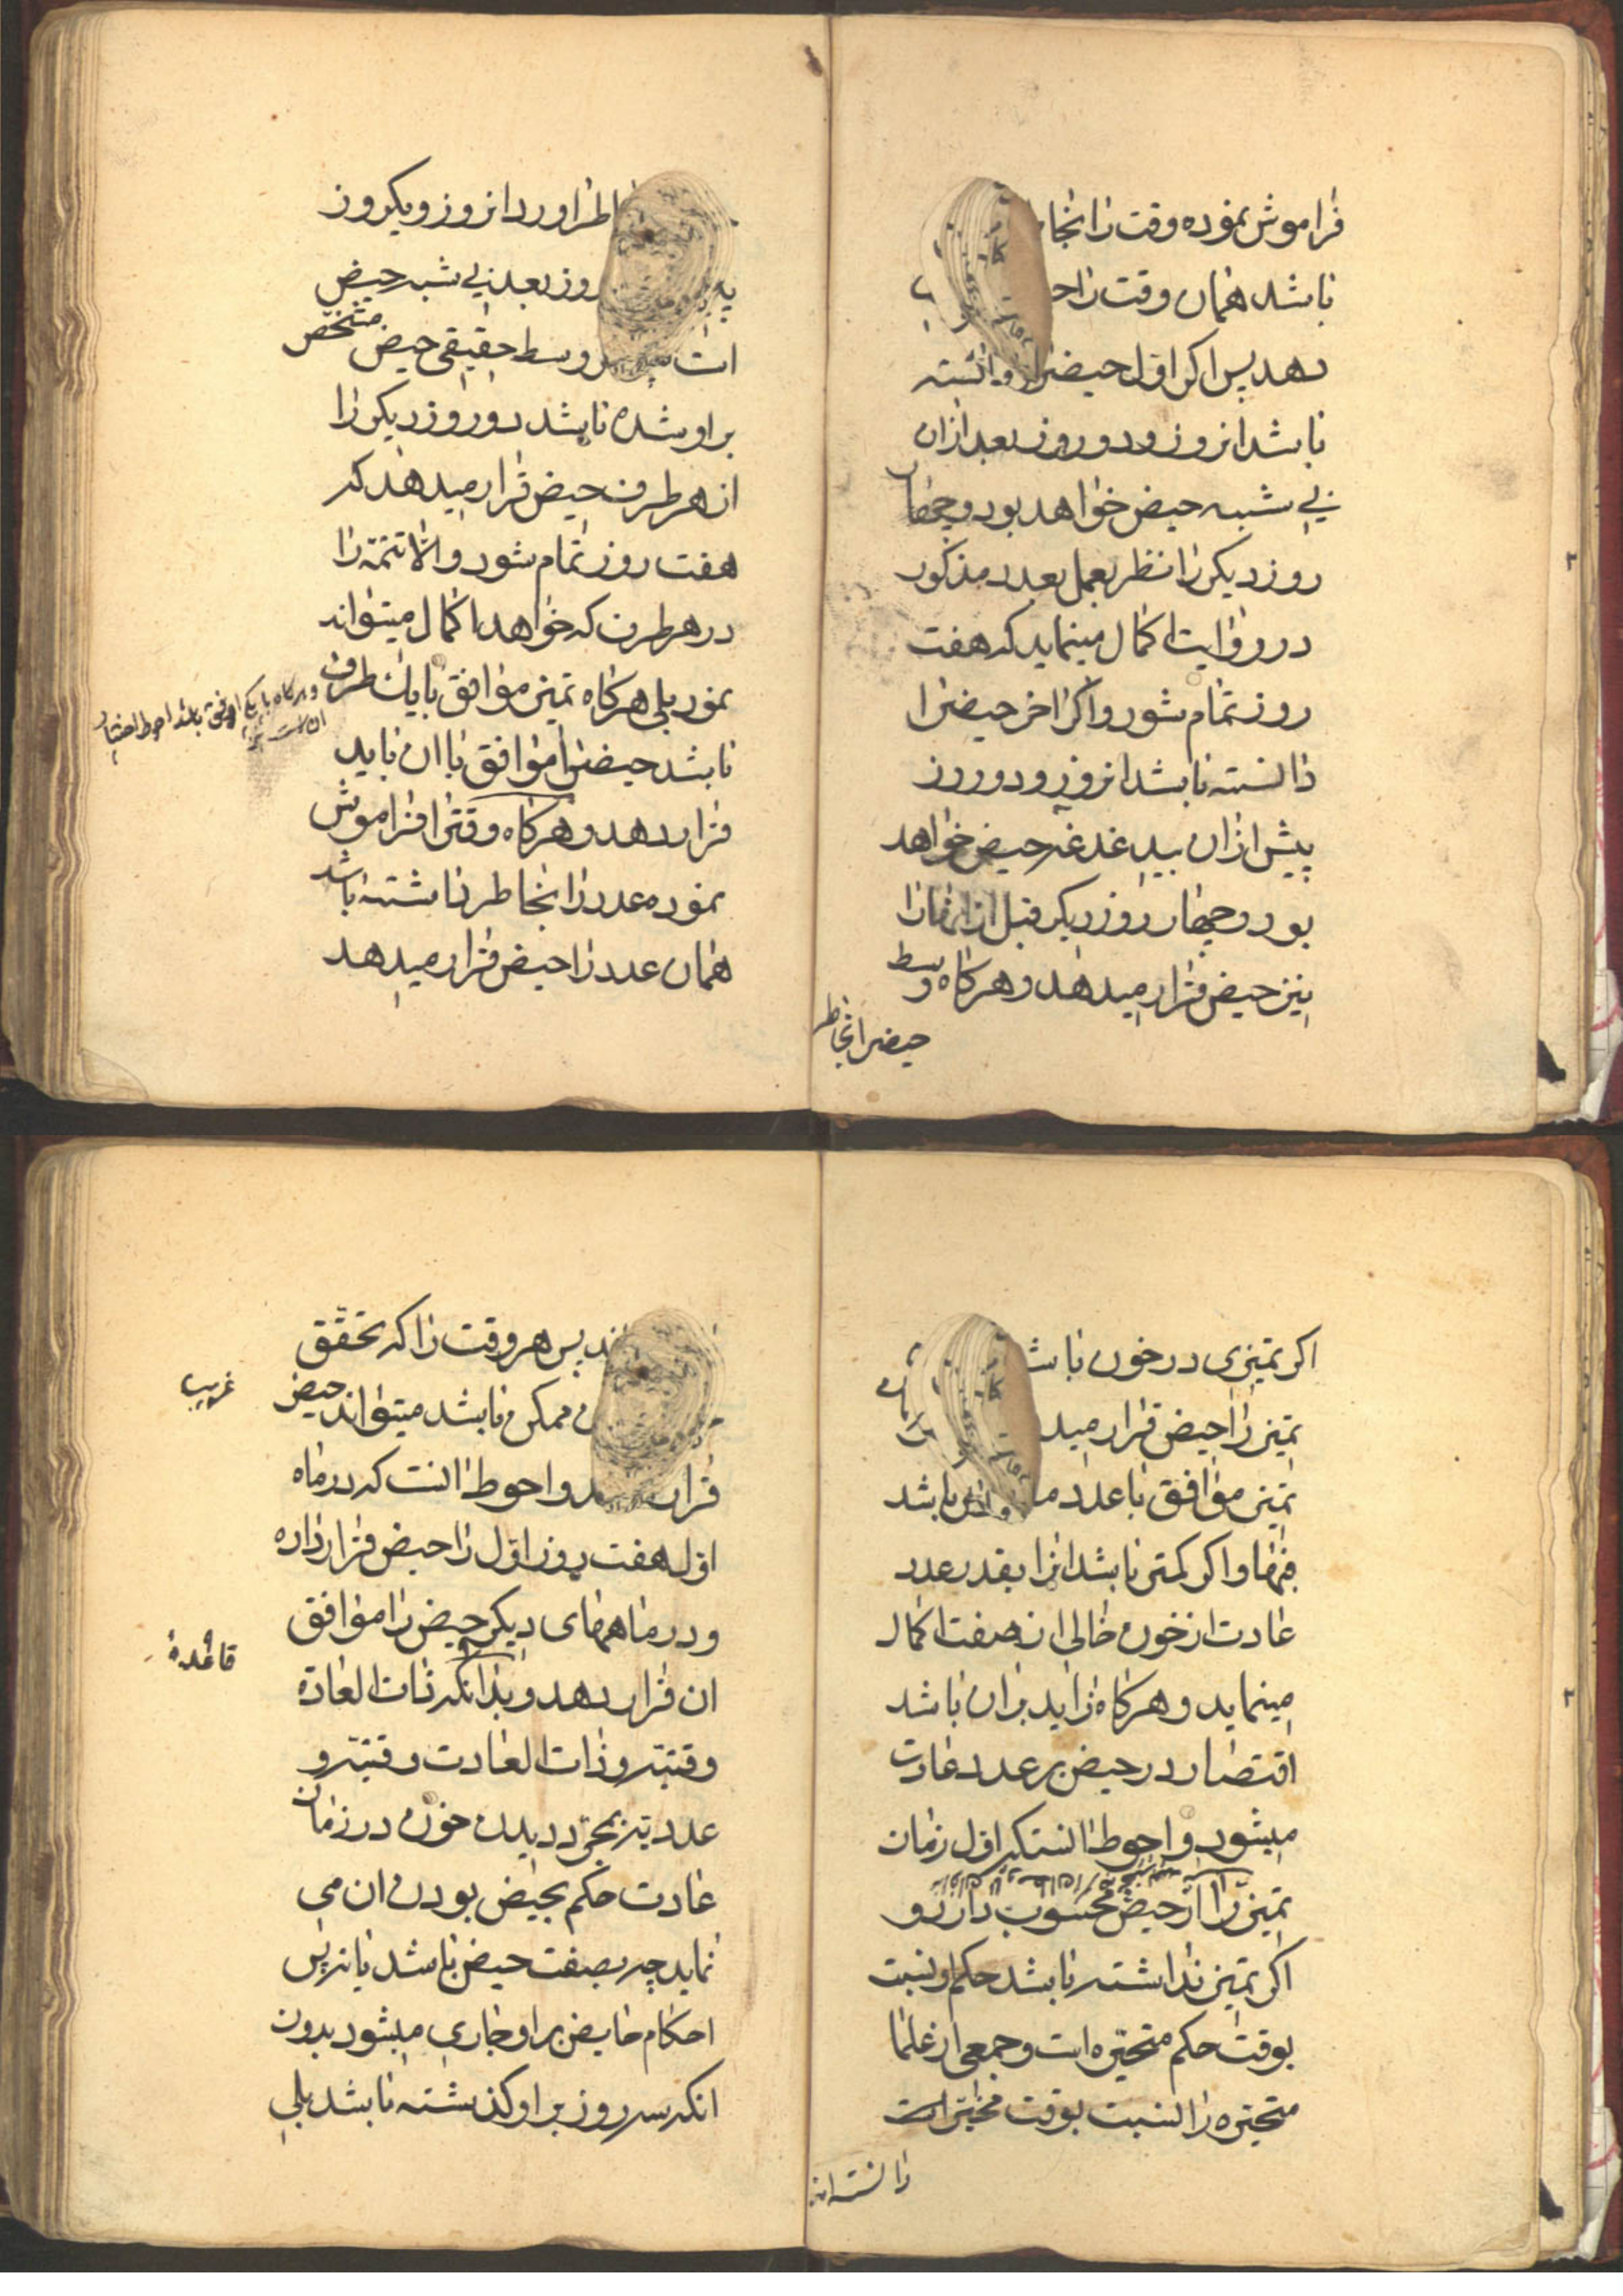 فراموش نموده وقت را بخا
باشد همان وقت را ح
دهد پس اکر اول حیض را دانسته
باشد انروز و دو روز بعد از ان
بی شبهه حیض خواهد بود و چهار
روز دیکر را نظر بعمل بعدد مذکور
در روایت اکمال مینماید که هفت
روز تمام شود و اکر اخر حیض را
دانسته باشد انروز و دو روز
پیش از ان بیدغدغه حیض خواهد
بود و چهار روز دیکر قبل از انها را
نیز حیض قرار میدهد و هرکاه وسط
حیض را بخاطر
اطر اورد انروز و یکروز
روز بعد بی شبهه حیض
ات وسط حقیقی حیض مشخص
بر او شده باشد دو روز دیکر را
از هر طرف حیض قرار میدهد که
هفت روز تمام شود و الا تتمه را
در هر طرف که خواهد اکمال میتواند
نمود بلی هرکاه تمیز موافق با یک طرف
باشد حیض را موافق با ان باید
قرار دهد و هرکاه وقت را فراموش
نموده عدد را بخاطر داشته باشد
همان عدد را حیض قرار میدهد
و هرکاه با یکی اوفق باشد احوط اختیار
ان است
اکر تمیزی در خون باش
تمیز را حیض قرار مید
تمیز موافق با عدد باشد
فبها و اکر کمتر باشد انرا بقدر عدد
عادت از خون خالی از صفت اکمال
مینماید و هرکاه زاید بر ان باشد
اقتصار در حیض بر عدد عادت
میشود و احوط انستکه اول زمان
تمیز را از حیض محسوب دارد و
اکر تمیز نداشته باشد حکم او نسبت
بوقت حکم متحیره است و جمعی از علما
متحیره را نسبت بوقت مخیر است
دانسته اند
ند پس هر وقت را که تحقق
ممکن باشد میتواند حیض
قرار د و احوط انست که در ماه
اول هفت روز اول را حیض قرار داده
و در ماههای دیکر حیض را موافق
ان قرار دهد و بدانکه ذات العاده
وقتیه و ذات العادت وقتیه و
عددیه بمجرد دیدن خون در زمان
عادت حکم بحیض بودن ان می
نماید چه بصفت حیض باشد یا نه پس
احکام حایض بر او جاری میشود بدون
انکه سه روز بر او کذشته باشد بلی
غریب
قاعدهٔ